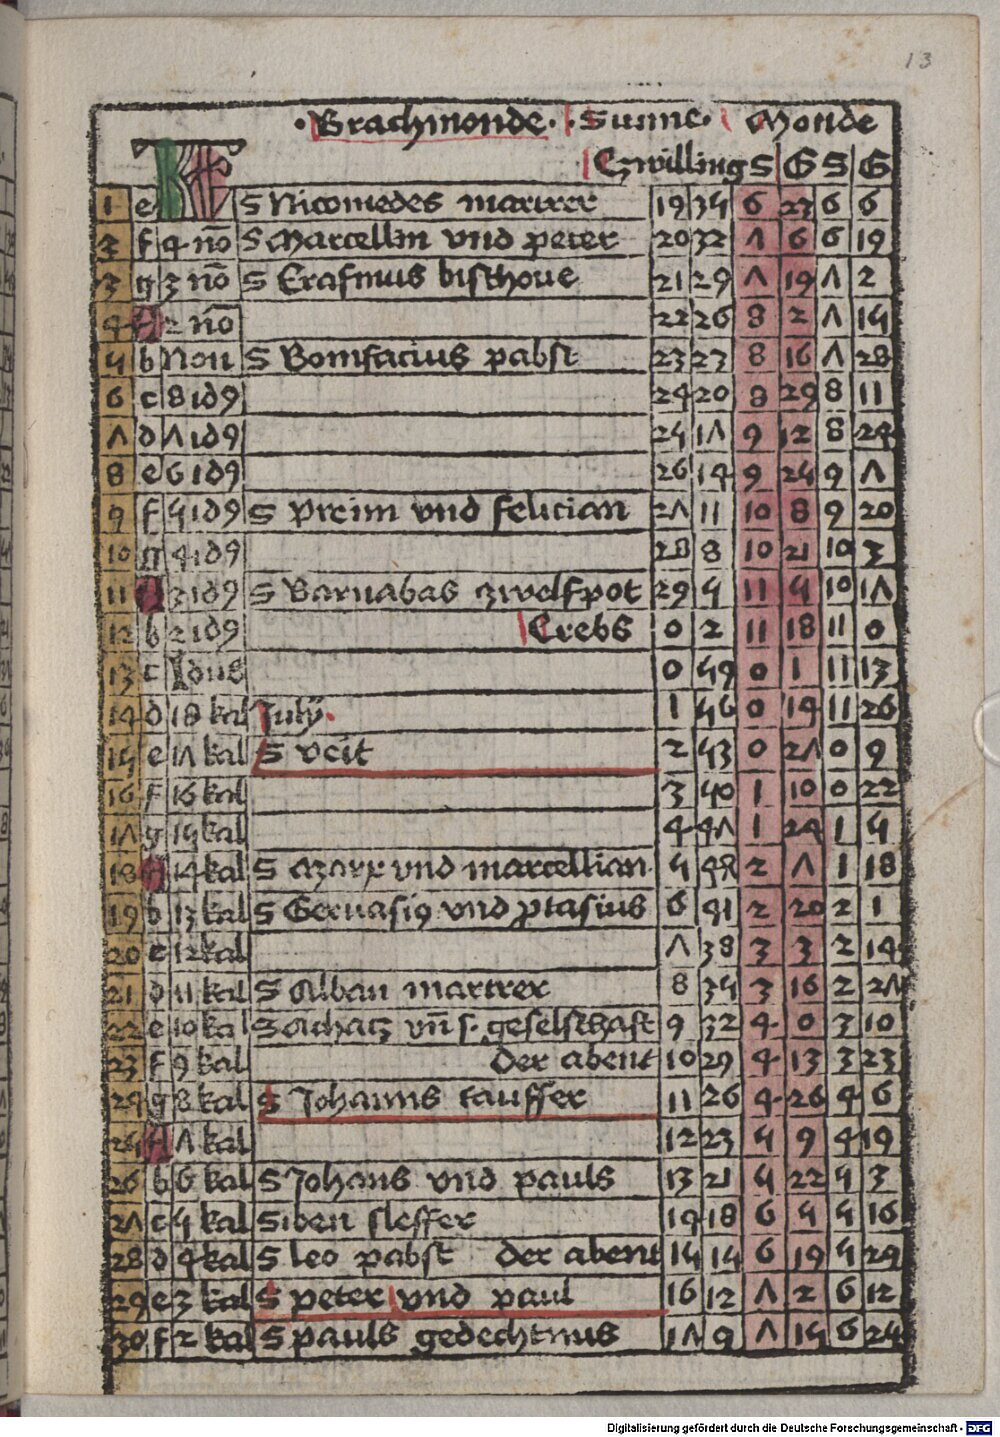 13
·Brachmonde· ·Sunne· Monde
KL Czwilling S G S G
1 e S Nicomedes martrer 19 34 6 23 6 6
2 f 4 no S Marcellin vnd peter 20 32 Λ 6 6 19
3 g 3 no S Erasmus bisthove 21 29 Λ 19 Λ 2
4 A 2 no 22 26 8 2 Λ 14
5 b Non S Bonifacius pabst 23 23 8 16 Λ 28
6 c 8 id9 24 20 8 29 8 11
Λ d Λ id9 25 1Λ 9 12 8 24
8 e 6 id9 26 14 9 25 9 Λ
9 f 5 id9 S Preim vnd felician 2Λ 11 10 8 9 20
10 g 4 id9 28 8 10 21 10 3
11 A 3 id9 S Barnabas zwelfpot 29 5 11 5 10 1Λ
12 b 2 id9 Crebs 0 2 11 18 11 0
13 c Idus 0 59 0 1 11 13
14 d 18 kal July. 1 56 0 14 11 26
15 e 1Λ kal S veit 2 53 0 2Λ 0 9
16 f 16 kal 3 50 1 10 0 22
1Λ g 15 kal 4 4Λ 1 24 1 5
18 A 14 kal S Marx vnd marcellian 5 2 Λ 1 18
19 b 13 kal S Gervasi9 vnd ptasius 6 41 2 20 2 1
20 c 12 kal Λ 38 3 3 2 14
21 d 11 kal S Alban martrer 8 35 3 16 2 2Λ
22 e 10 kal S Achatz vn̄ s. geselschaft 9 32 4 0 3 10
23 f 9 kal der abent 10 29 4 13 3 23
24 g 8 kal S Johanns tauffer 11 26 4 26 4 6
25 A Λ kal 12 23 5 9 4 19
26 b 6 kal S Johans vnd pauls 13 21 5 22 5 3
2Λ c 5 kal Siben sleffer 14 18 6 5 5 16
28 d 4 kal S leo pabst der abent 15 15 6 19 5 29
29 e 3 kal S peter vnd paul 16 12 Λ 2 6 12
30 f 2 kal S pauls gedechtnus 1Λ 9 Λ 15 6 25
Digitalisierung gefördert durch die Deutsche Forschungsgemeinschaft - DFG